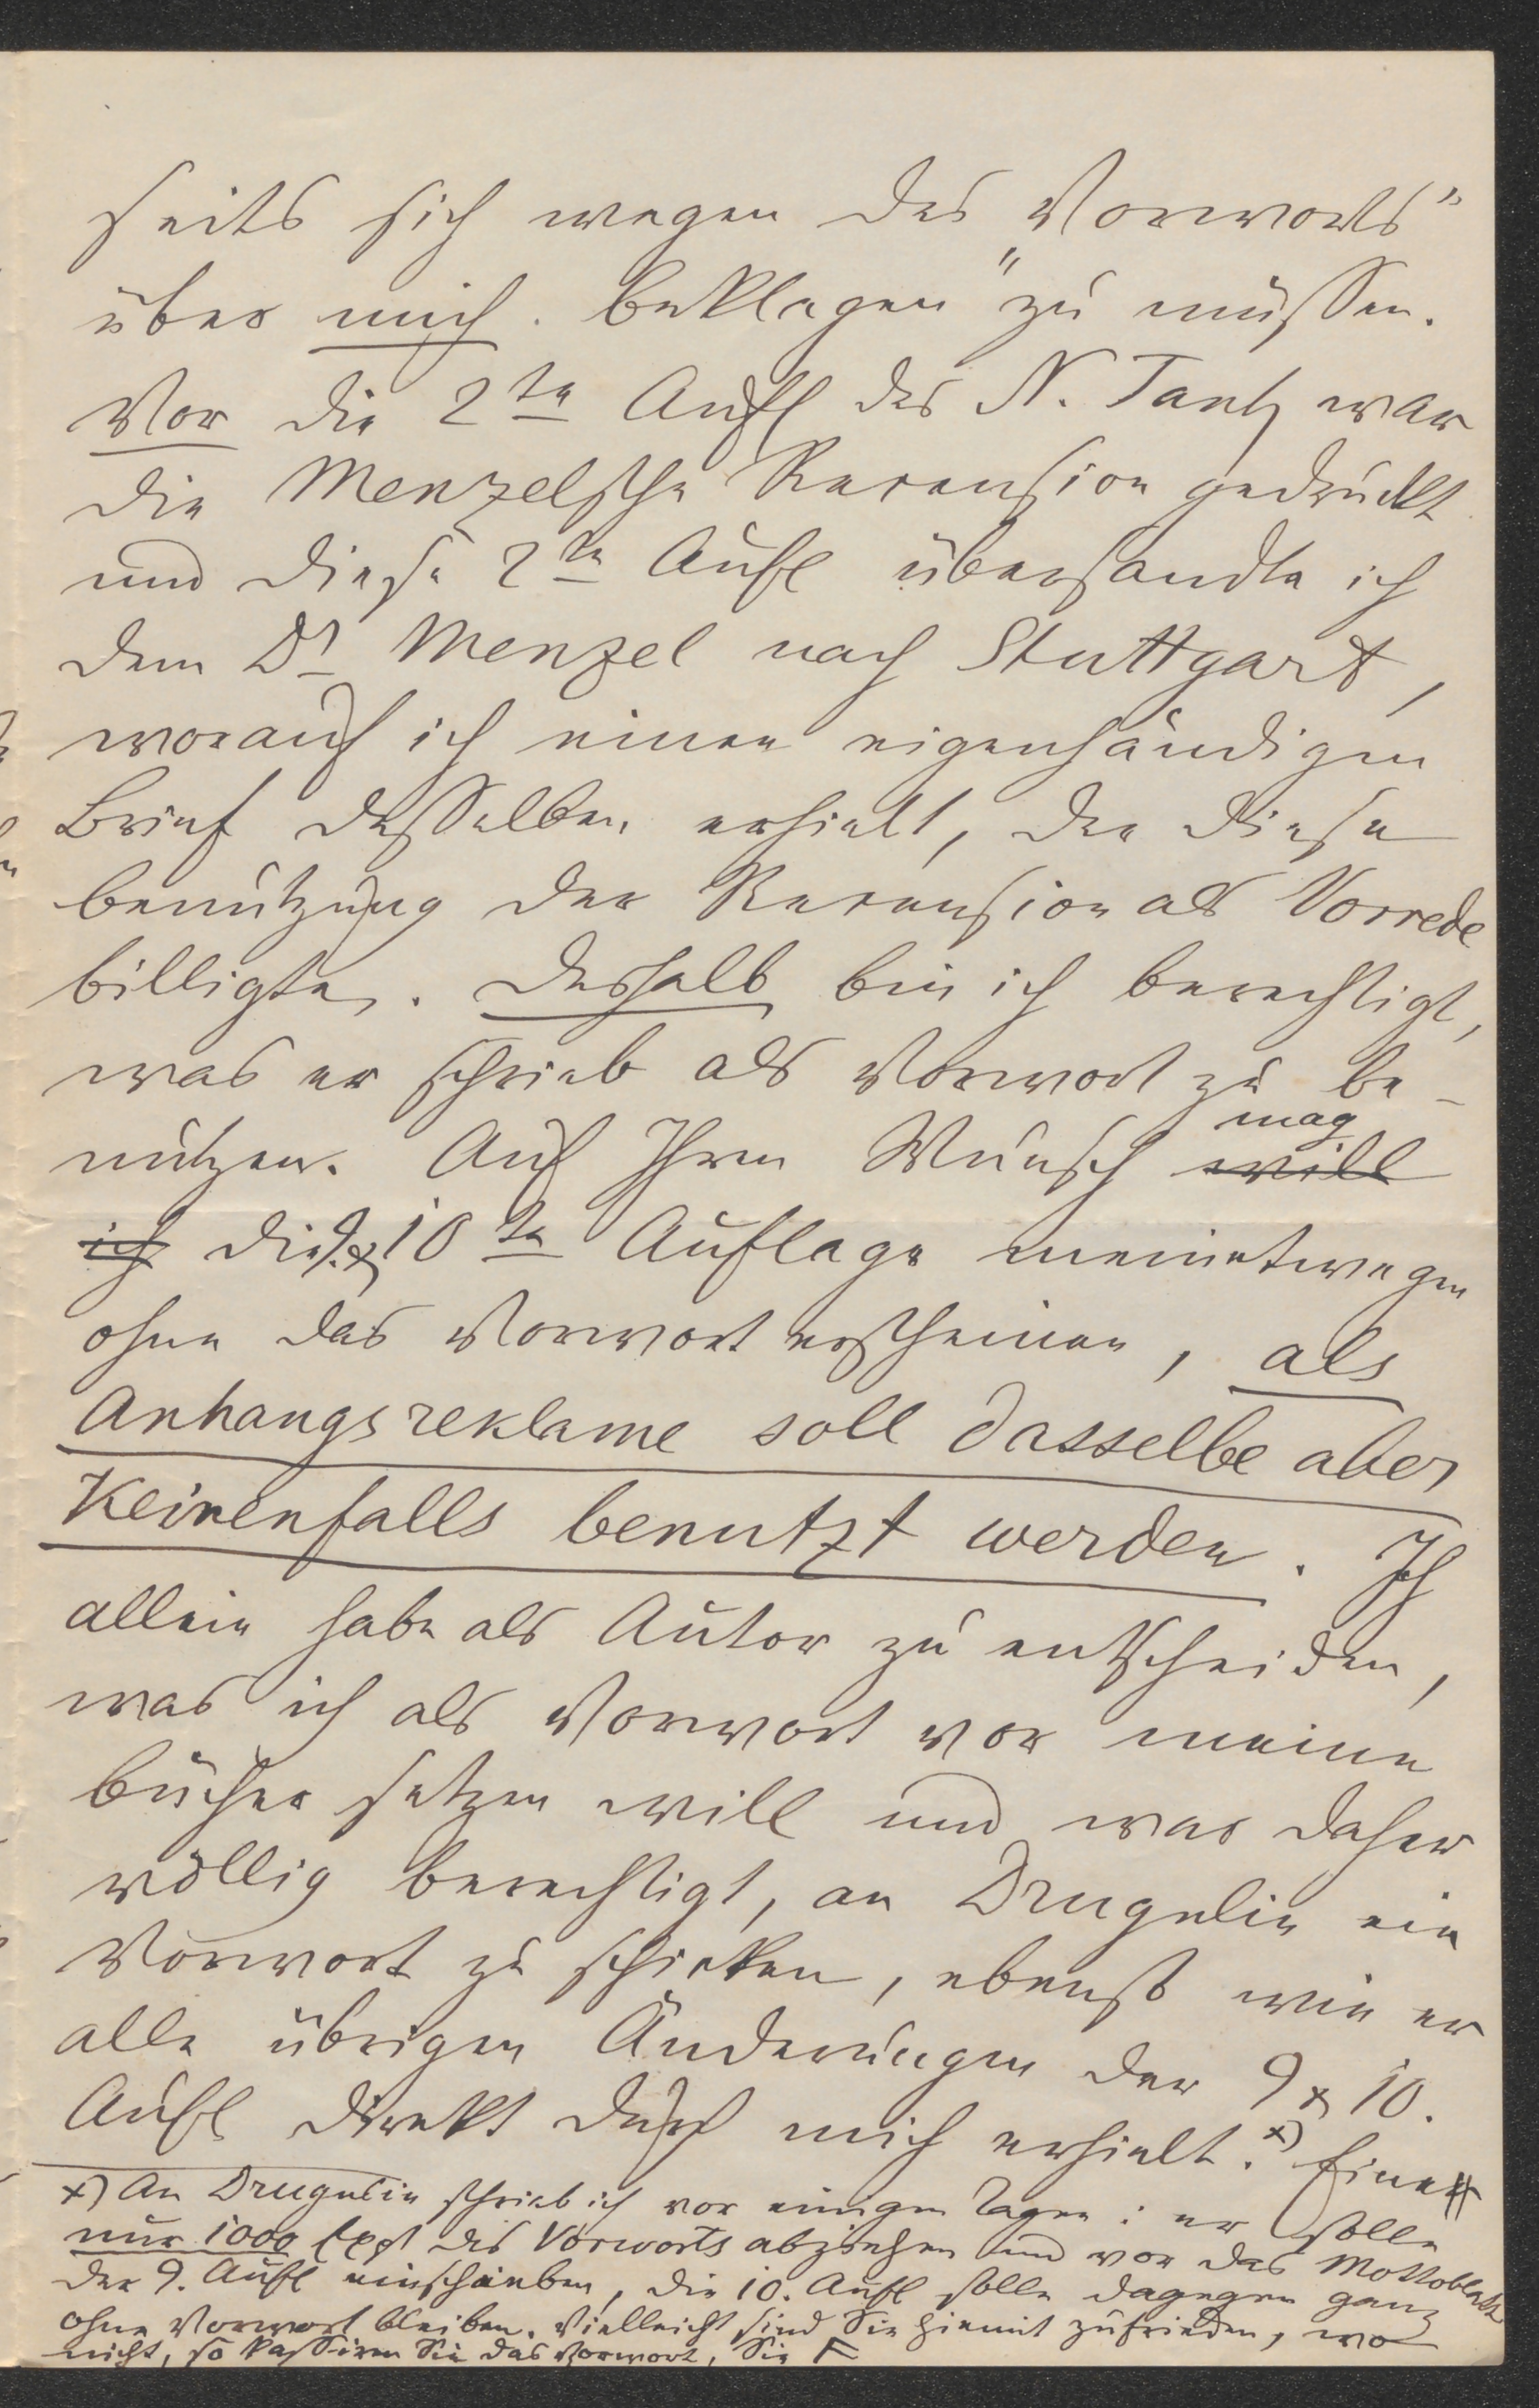 seits sich wegen des „Vorworts"
über mich beklagen zu müssen.
Vor die 2te Aufl des N. Tanh war
die Menzelsche Recension gedruckt
und diese 2te Aufl übersandte ich
dem Dr Menzel nach Stuttgart,
worauf ich einen eigenhändigen
Brief desselben erhielt, der diese
Benützung der Recension als Vorrede
billigte. Deshalb bin ich berechtigt,
was er schrieb als Vorwort zu be-
mag
nützen. Auf Ihren Wunsch will
ich die 9. & 10te Auflage meinetwegen
ohne das Vorwort erscheinen, als
Anhangsreklame soll dasselbe aber
Keinenfalls benutzt werden. Ich
allein habe als Autor zu entscheiden,
was ich als Vorwort vor meine
Bücher setzen will und war daher
völlig berechtigt, an Drugulin ein
Vorwort zu schicken, ebenso wie er
alle übrigen Änderungen der 9 & 10.
Aufl direkt durch mich erhielt. x) Eine
x) An Drugulin schrieb ich vor einigen Tagen: er solle
nur 1000 Expl des Vorworts abziehen und vor das Mottoblatt
der 9. Aufl einschieben, die 10. Aufl solle dagegen ganz
ohne Vorwort bleiben. Vielleicht sind Sie hiemit zufrieden, wo
nicht, so kassiren Sie das Vorwort, Sie